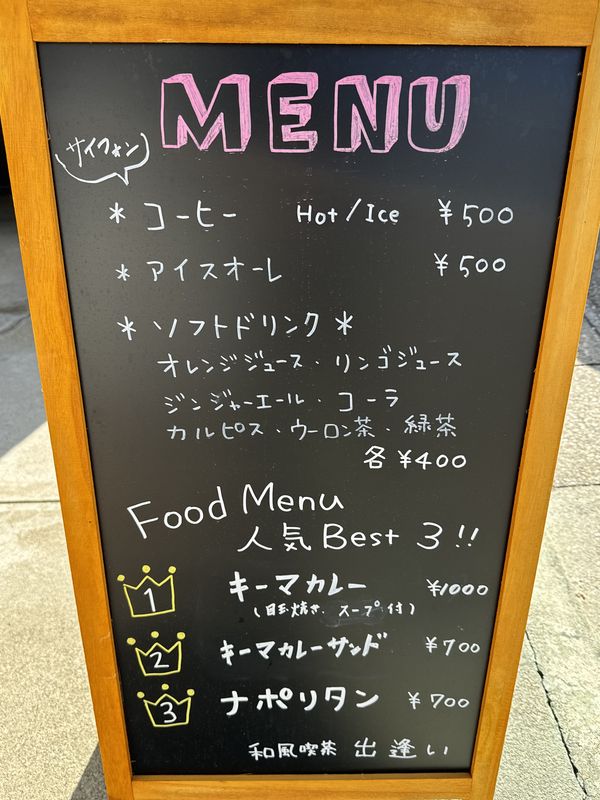 MENU
サイフォン
* コーヒー Hot/Ice ¥500
* アイスオーレ ¥500
* ソフトドリンク *
オレンジジュース・リンゴジュース
ジンジャーエール・コーラ
カルピス・ウーロン茶・緑茶
各 ¥400
Food Menu
人気 Best 3!!
1 キーマカレー ¥1000
(目玉焼き、スープ付)
2 キーマカレーサンド ¥700
3 ナポリタン ¥700
和風喫茶 出逢い